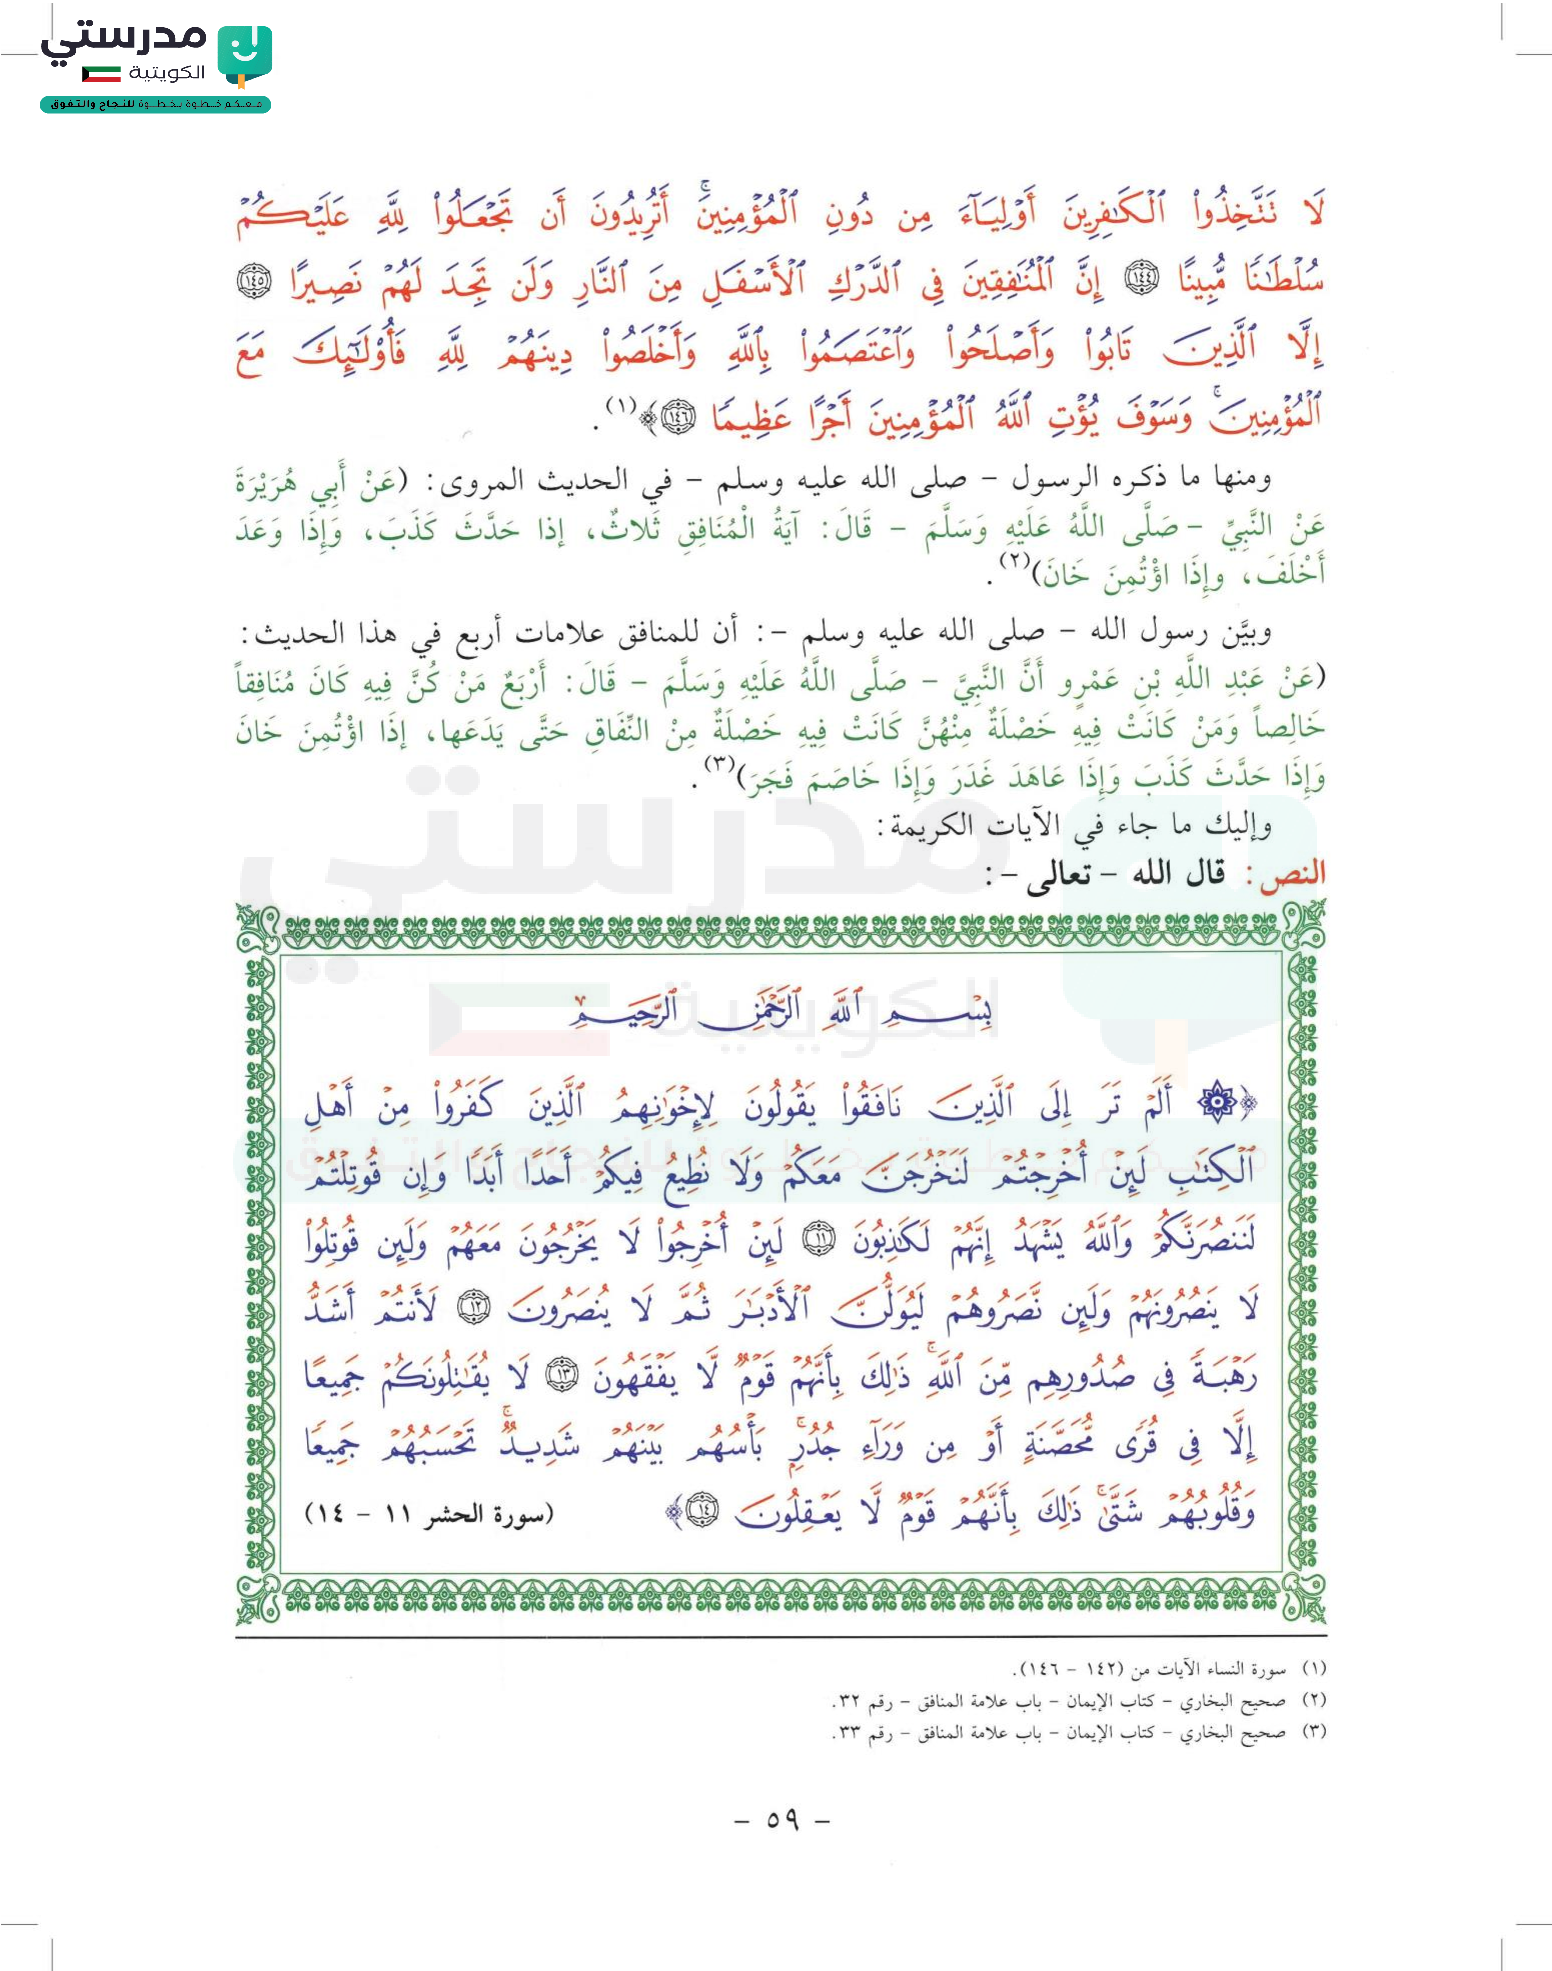 مدرستي
الكويتية
معكم خطوة بخطوة للنجاح والتفوق
لَا تَتَّخِذُوا۟ ٱلْكَٰفِرِينَ أَوْلِيَآءَ مِن دُونِ ٱلْمُؤْمِنِينَ ۚ أَتُرِيدُونَ أَن تَجْعَلُوا۟ لِلَّهِ عَلَيْكُمْ
سُلْطَٰنًا مُّبِينًا ١٤٤ إِنَّ ٱلْمُنَٰفِقِينَ فِى ٱلدَّرْكِ ٱلْأَسْفَلِ مِنَ ٱلنَّارِ وَلَن تَجِدَ لَهُمْ نَصِيرًا ١٤٥
إِلَّا ٱلَّذِينَ تَابُوا۟ وَأَصْلَحُوا۟ وَٱعْتَصَمُوا۟ بِٱللَّهِ وَأَخْلَصُوا۟ دِينَهُمْ لِلَّهِ فَأُو۟لَٰٓئِكَ مَعَ
ٱلْمُؤْمِنِينَ ۖ وَسَوْفَ يُؤْتِ ٱللَّهُ ٱلْمُؤْمِنِينَ أَجْرًا عَظِيمًا ١٤٦﴾(١).
ومنها ما ذكره الرسول – صلى الله عليه وسلم – في الحديث المروى: (عَنْ أَبِي هُرَيْرَةَ
عَنْ النَّبِيِّ – صَلَّى اللَّهُ عَلَيْهِ وَسَلَّمَ – قَالَ: آيَةُ الْمُنَافِقِ ثَلاثٌ، إذا حَدَّثَ كَذَبَ، وَإِذَا وَعَدَ
أَخْلَفَ، وإِذَا اؤْتُمِنَ خَانَ)(٢).
وبيَّن رسول الله – صلى الله عليه وسلم –: أن للمنافق علامات أربع في هذا الحديث:
(عَنْ عَبْدِ اللَّهِ بْنِ عَمْرٍو أَنَّ النَّبِيَّ – صَلَّى اللَّهُ عَلَيْهِ وَسَلَّمَ – قَالَ: أَرْبَعٌ مَنْ كُنَّ فِيهِ كَانَ مُنَافِقاً
خَالِصاً وَمَنْ كَانَتْ فِيهِ خَصْلَةٌ مِنْهُنَّ كَانَتْ فِيهِ خَصْلَةٌ مِنْ النِّفَاقِ حَتَّى يَدَعَها، إذَا اؤْتُمِنَ خَانَ
وَإِذَا حَدَّثَ كَذَبَ وَإِذَا عَاهَدَ غَدَرَ وَإِذَا خَاصَمَ فَجَرَ)(٣).
وإليك ما جاء في الآيات الكريمة:
النص: قال الله – تعالى –:
بِسْمِ ٱللَّهِ ٱلرَّحْمَٰنِ ٱلرَّحِيمِ
﴿۞ أَلَمْ تَرَ إِلَى ٱلَّذِينَ نَافَقُوا۟ يَقُولُونَ لِإِخْوَٰنِهِمُ ٱلَّذِينَ كَفَرُوا۟ مِنْ أَهْلِ
ٱلْكِتَٰبِ لَئِنْ أُخْرِجْتُمْ لَنَخْرُجَنَّ مَعَكُمْ وَلَا نُطِيعُ فِيكُمْ أَحَدًا أَبَدًا وَإِن قُوتِلْتُمْ
لَنَنصُرَنَّكُمْ وَٱللَّهُ يَشْهَدُ إِنَّهُمْ لَكَٰذِبُونَ ١١ لَئِنْ أُخْرِجُوا۟ لَا يَخْرُجُونَ مَعَهُمْ وَلَئِن قُوتِلُوا۟
لَا يَنصُرُونَهُمْ وَلَئِن نَّصَرُوهُمْ لَيُوَلُّنَّ ٱلْأَدْبَٰرَ ثُمَّ لَا يُنصَرُونَ ١٢ لَأَنتُمْ أَشَدُّ
رَهْبَةً فِى صُدُورِهِم مِّنَ ٱللَّهِ ۚ ذَٰلِكَ بِأَنَّهُمْ قَوْمٌ لَّا يَفْقَهُونَ ١٣ لَا يُقَٰتِلُونَكُمْ جَمِيعًا
إِلَّا فِى قُرًى مُّحَصَّنَةٍ أَوْ مِن وَرَآءِ جُدُرٍۭ ۚ بَأْسُهُم بَيْنَهُمْ شَدِيدٌ ۚ تَحْسَبُهُمْ جَمِيعًا
وَقُلُوبُهُمْ شَتَّىٰ ۚ ذَٰلِكَ بِأَنَّهُمْ قَوْمٌ لَّا يَعْقِلُونَ ١٤﴾ (سورة الحشر ١١ – ١٤)
(١) سورة النساء الآيات من (١٤٢ – ١٤٦).
(٢) صحيح البخاري – كتاب الإيمان – باب علامة المنافق – رقم ٣٢.
(٣) صحيح البخاري – كتاب الإيمان – باب علامة المنافق – رقم ٣٣.
– ٥٩ –